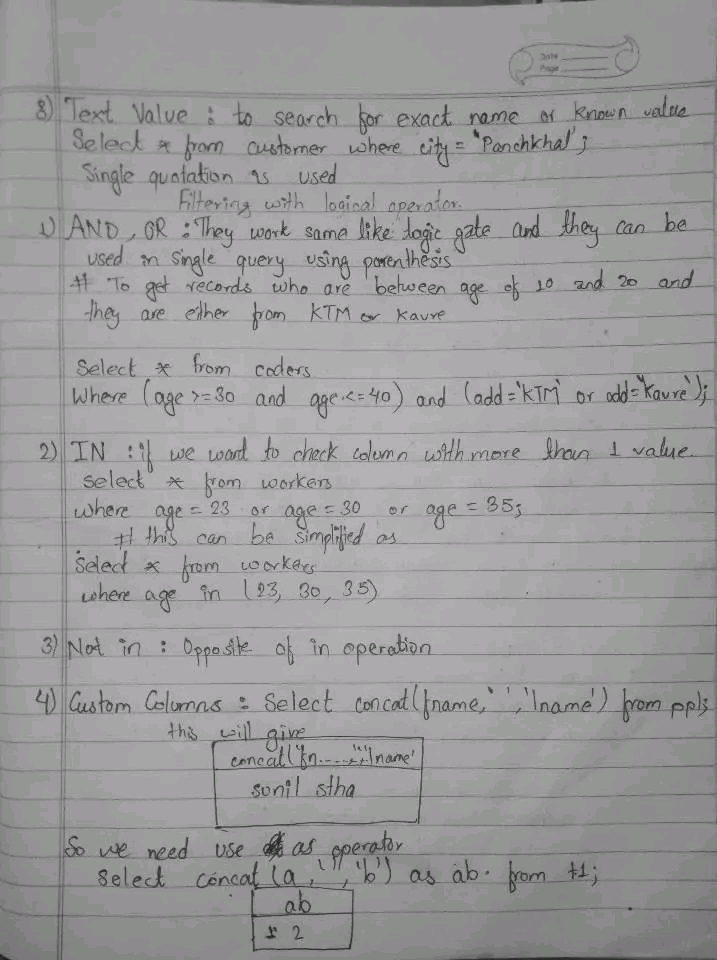 Date
Page
8) Text Value : to search for exact name or known value
Select * from customer where city = 'Panchkhal';
Single quotation is used
Filtering with logical operator.
1) AND, OR : They work same like logic gate and they can be
used in single query using parenthesis
# To get records who are between age of 10 and 20 and
they are either from KTM or Kavre
Select * from coders
Where (age >= 30 and age <= 40) and (add = 'KTM' or add = 'Kavre');
2) IN : if we want to check column with more than 1 value.
Select * from workers
where age = 23 or age = 30 or age = 35;
# this can be simplified as
Select * from workers
where age in (23, 30, 35)
3) Not in : Opposite of in operation
4) Custom Columns : Select concat(fname,' ','lname') from ppl;
this will give
concat('fn......,' ','lname'
sunil stha
So we need use as operator
Select concat (a,' ','b') as ab. from t1;
ab
1 2